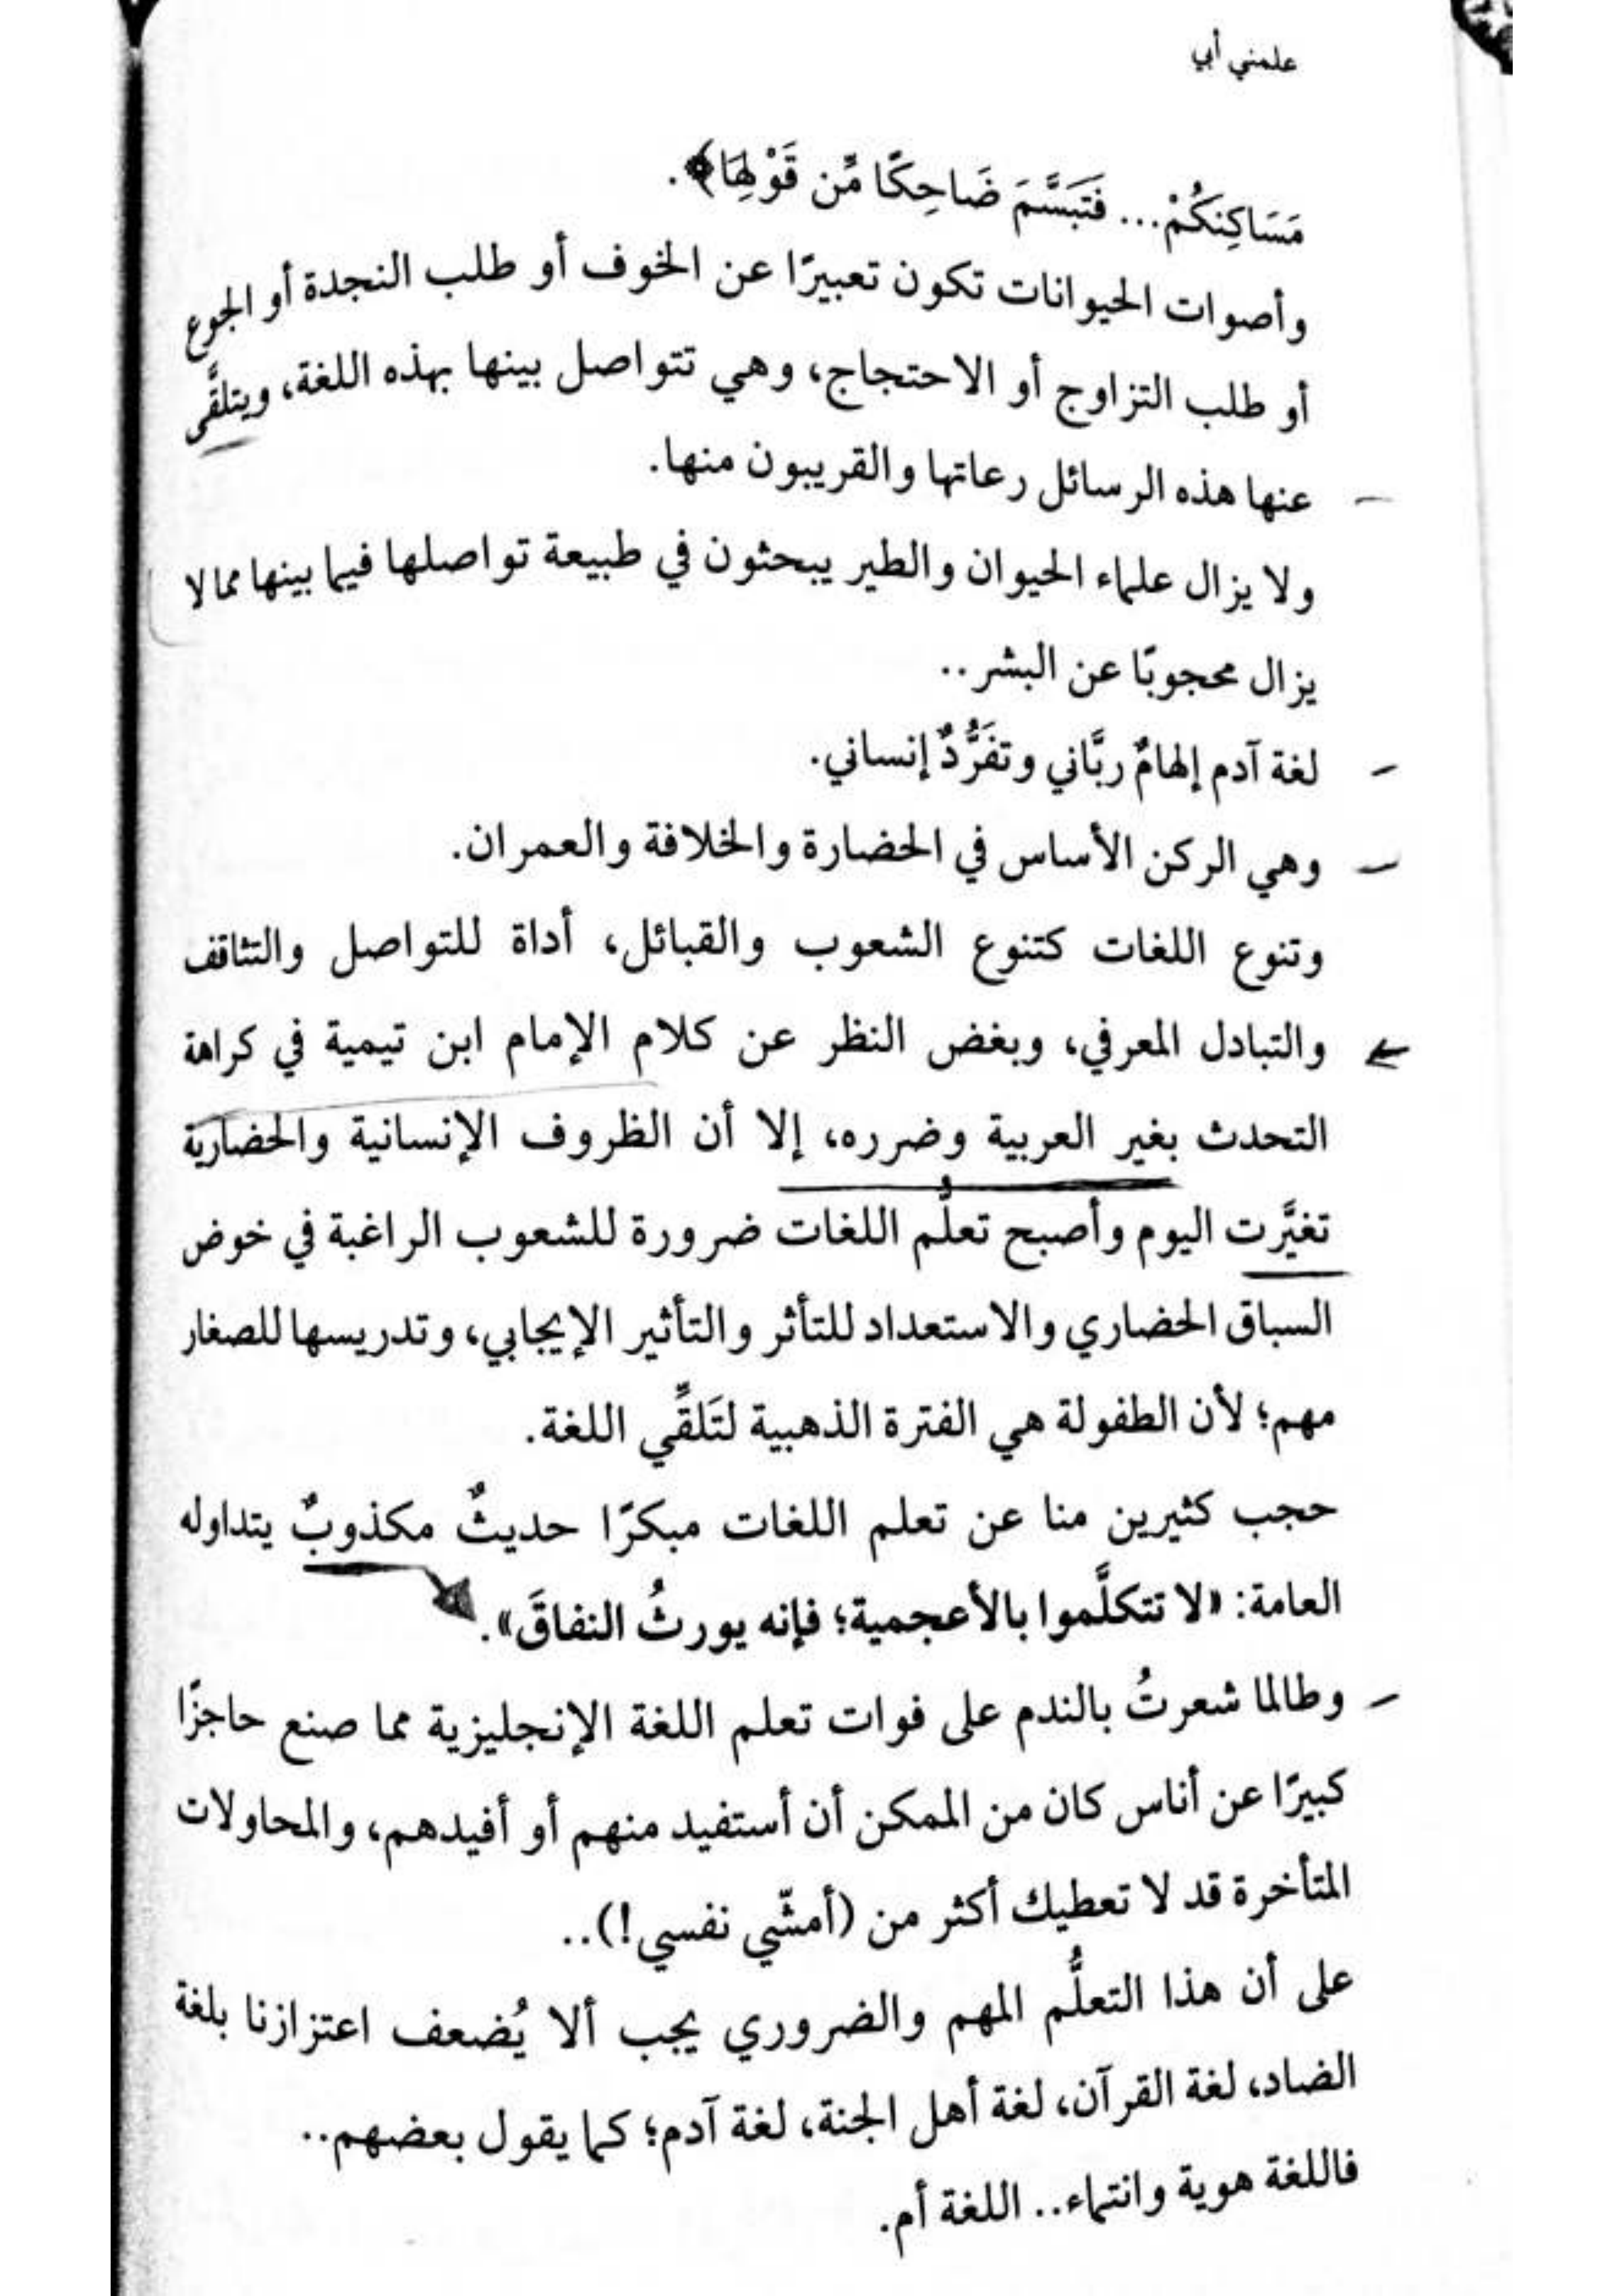 علمني أبي
مَسَاكِنَكُمْ... فَتَبَسَّمَ ضَاحِكًا مِّن قَوْلِهَا﴾.
وأصوات الحيوانات تكون تعبيرًا عن الخوف أو طلب النجدة أو الجوع
أو طلب التزاوج أو الاحتجاج، وهي تتواصل بينها بهذه اللغة، ويتلقَّى
عنها هذه الرسائل رعاتها والقريبون منها.
ولا يزال علماء الحيوان والطير يبحثون في طبيعة تواصلها فيما بينها مما لا
يزال محجوبًا عن البشر..
لغة آدم إلهامٌ ربَّاني وتفَرُّدٌ إنساني.
وهي الركن الأساس في الحضارة والخلافة والعمران.
وتنوع اللغات كتنوع الشعوب والقبائل، أداة للتواصل والتثاقف
والتبادل المعرفي، وبغض النظر عن كلام الإمام ابن تيمية في كراهة
التحدث بغير العربية وضرره، إلا أن الظروف الإنسانية والحضارية
تغيَّرت اليوم وأصبح تعلُّم اللغات ضرورة للشعوب الراغبة في خوض
السباق الحضاري والاستعداد للتأثر والتأثير الإيجابي، وتدريسها للصغار
مهم؛ لأن الطفولة هي الفترة الذهبية لتَلقِّي اللغة.
حجب كثيرين منا عن تعلم اللغات مبكرًا حديثٌ مكذوبٌ يتداوله
العامة: «لا تتكلَّموا بالأعجمية؛ فإنه يورثُ النفاقَ».
وطالما شعرتُ بالندم على فوات تعلم اللغة الإنجليزية مما صنع حاجزًا
كبيرًا عن أناس كان من الممكن أن أستفيد منهم أو أفيدهم، والمحاولات
المتأخرة قد لا تعطيك أكثر من (أمشّي نفسي!)..
على أن هذا التعلُّم المهم والضروري يجب ألا يُضعف اعتزازنا بلغة
الضاد، لغة القرآن، لغة أهل الجنة، لغة آدم؛ كما يقول بعضهم..
فاللغة هوية وانتماء.. اللغة أم.